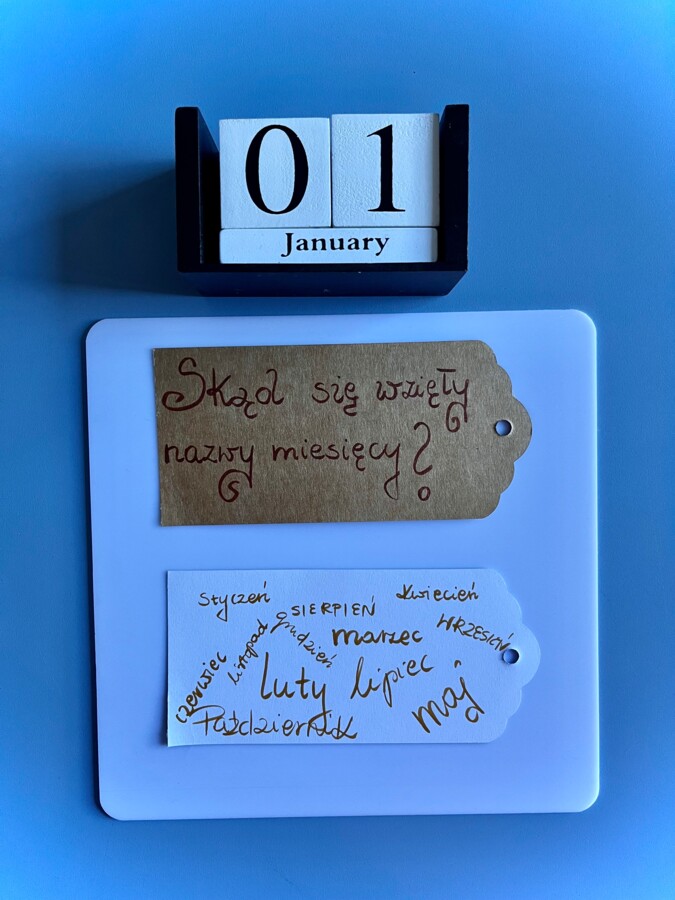 01
January
Skąd się wzięły
nazwy miesięcy?
styczeń
SIERPIEŃ
kwiecień
listopad
grudzień
marzec
WRZESIEŃ
czerwiec
luty
lipiec
maj
Październik